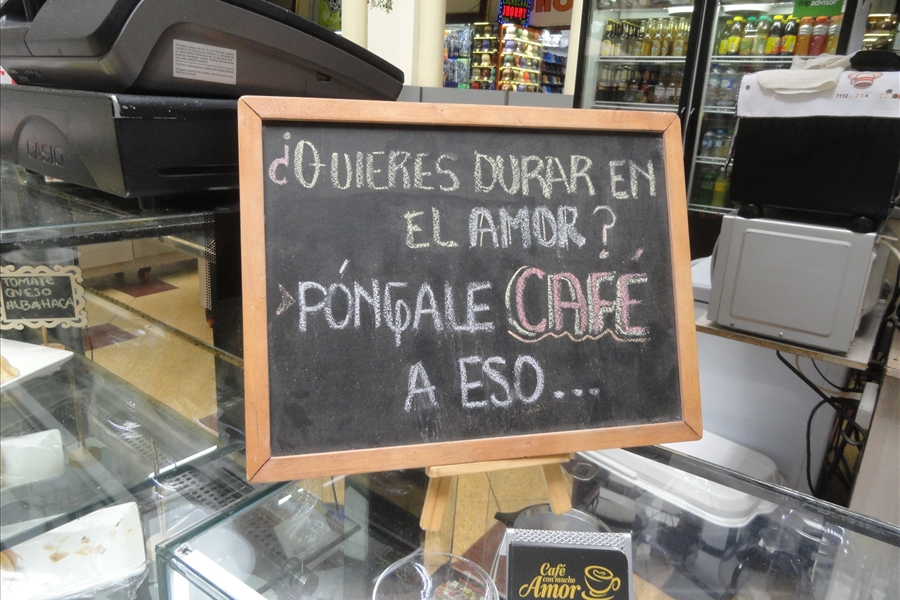 ¿QUIERES DURAR EN
EL AMOR?
PÓNGALE CAFÉ
A ESO...
CASIO
TOMATE
QUESO
ALBAHACA
Café
con mucho
Amor